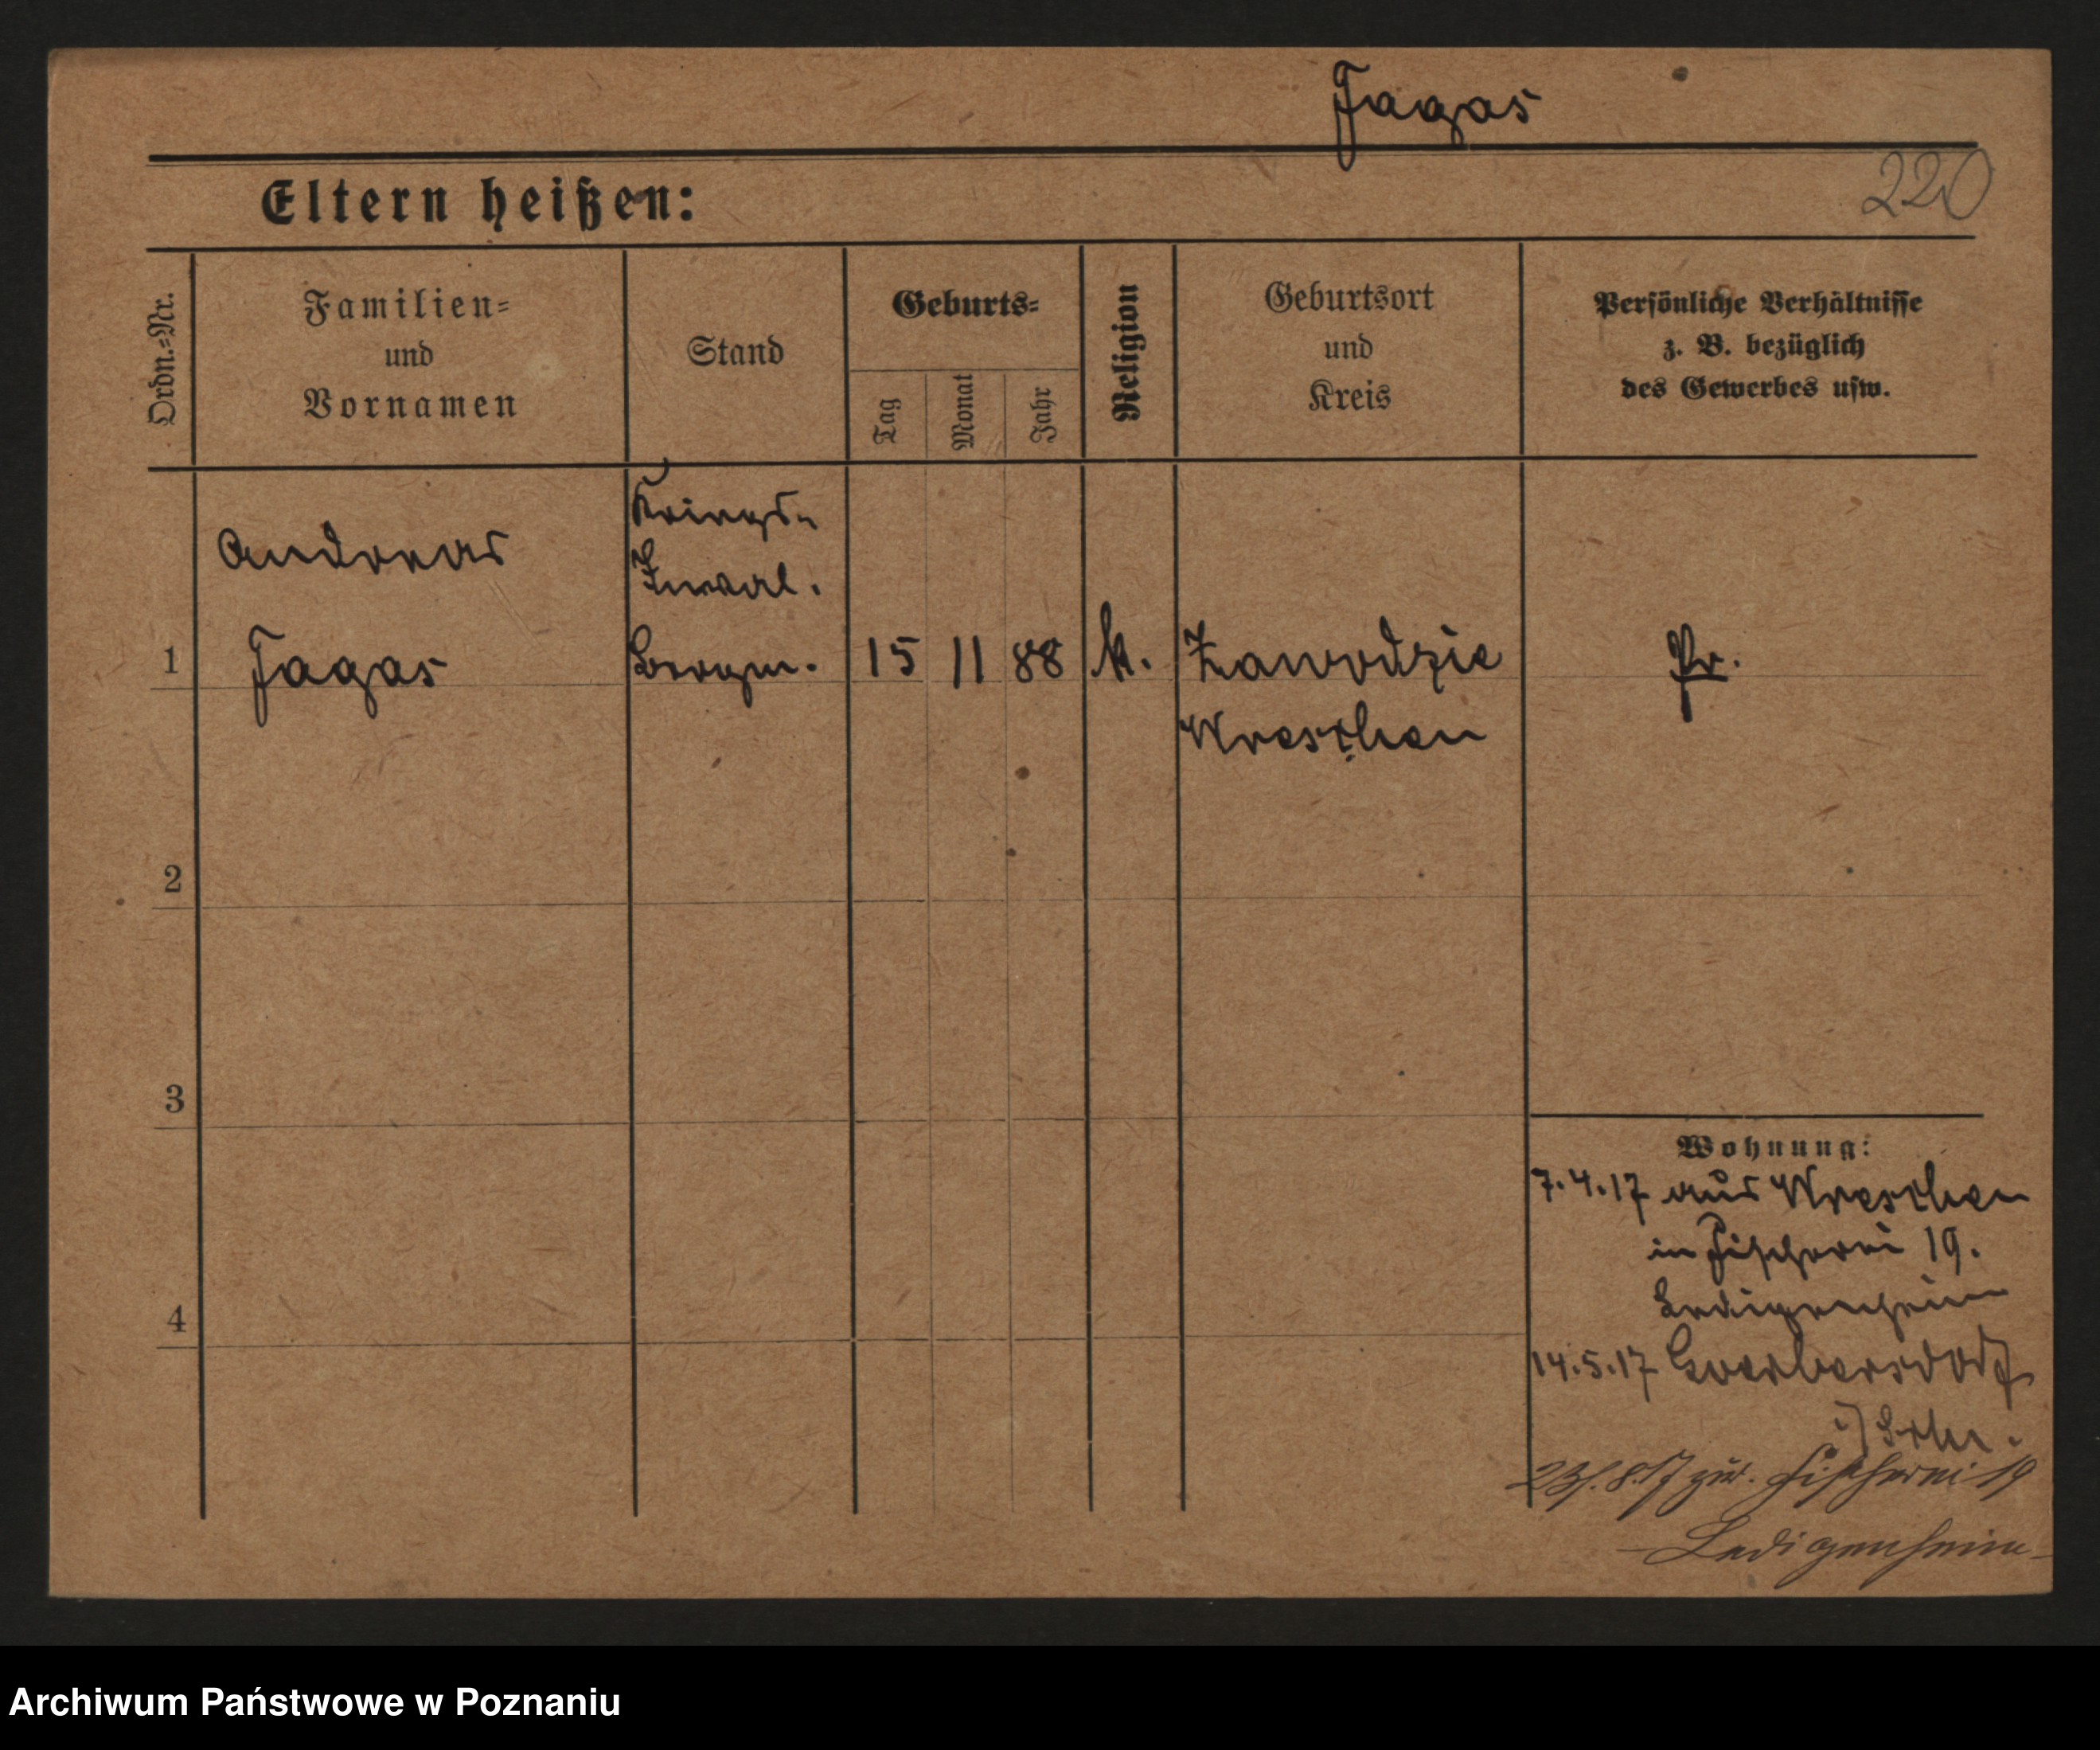 Jagas
220
Eltern heißen:
Ordn.=Nr.
Familien=
und
Vornamen
Stand
Geburts=
Tag
Monat
Jahr
Religion
Geburtsort
und
Kreis
Persönliche Verhältnisse
z. B. bezüglich
des Gewerbes usw.
Andreas
Jagas
Kriegs-
Inval.
Bergm.
1
15
11
88
k.
Zawodzie
Wreschen
Pr.
2
3
4
Wohnung:
7.4.17 aus Wreschen
in Fischerei 19.
Ledigenheim
14.5.17 Goerbersdorf
i/ Schl.
23/.8.17 zur. Fischerei 19
- Ledigenheim -
Archiwum Państwowe w Poznaniu